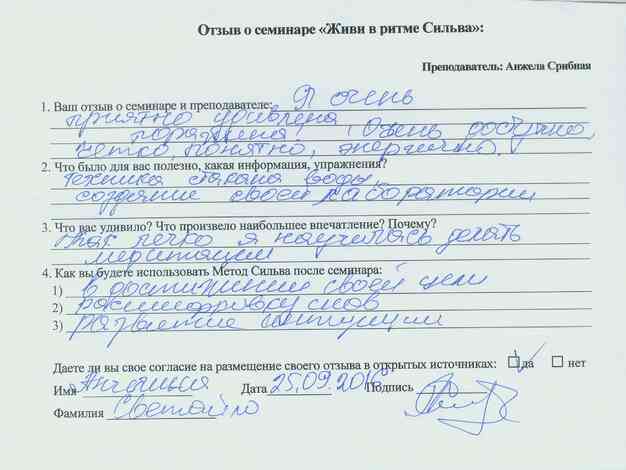 Отзыв о семинаре «Живи в ритме Сильва»:
Преподаватель: Анжела Срибная
1. Ваш отзыв о семинаре и преподавателе: Я очень
приятно удивлена
поражена! Очень доступно,
четко, понятно, энергично.
2. Что было для вас полезно, какая информация, упражнения?
техника стакана воды,
создание своей лаборатории
3. Что вас удивило? Что произвело наибольшее впечатление? Почему?
как легко я научилась делать
медитации
4. Как вы будете использовать Метод Сильва после семинара:
1) в достижении своей цели
2) расшифровку снов
3) развитие интуиции
Даете ли вы свое согласие на размещение своего отзыва в открытых источниках: да нет
Имя Дата 25.09.2016 Подпись
Фамилия Светайло